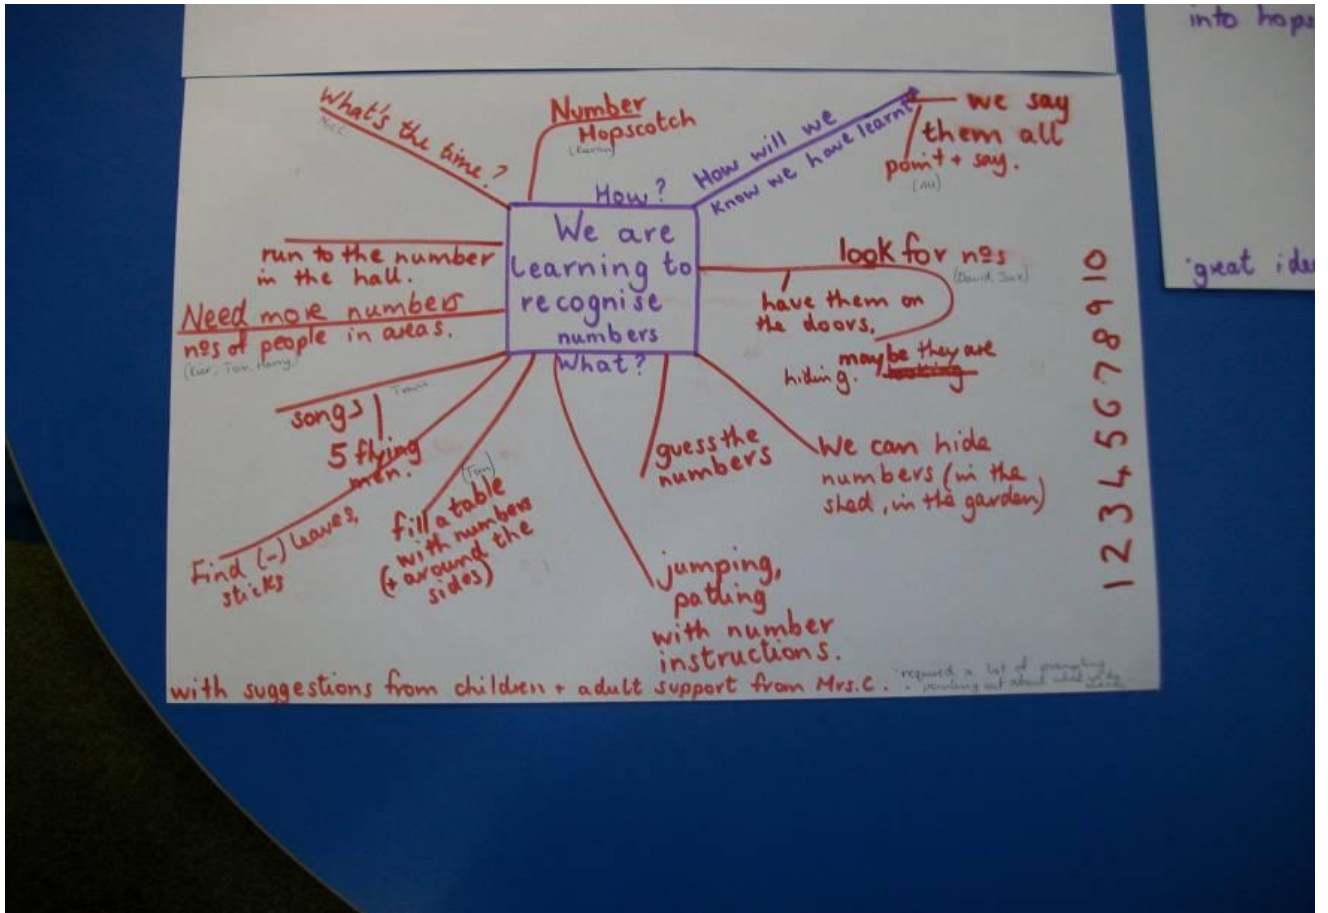 into hops
great idea
What's the time?
Mrs C
Number
Hopscotch
(Kieran)
How will we
know we have learnt?
we say
them all
point + say.
(Ali)
How?
We are
learning to
recognise
numbers
What?
run to the number
in the hall.
Need more numbers
nºs of people in areas.
songs
5 flying
men.
Find (-) leaves,
sticks
(Tom)
fill a table
with numbers
(+ around the
sides)
jumping,
patting
with number
instructions.
guess the
numbers
We can hide
numbers (in the
shed, in the garden)
look for nºs
(David, Jack)
have them on
the doors.
maybe they are
hiding.
1 2 3 4 5 6 7 8 9 10
with suggestions from children + adult support from Mrs. C.
required a lot of prompting